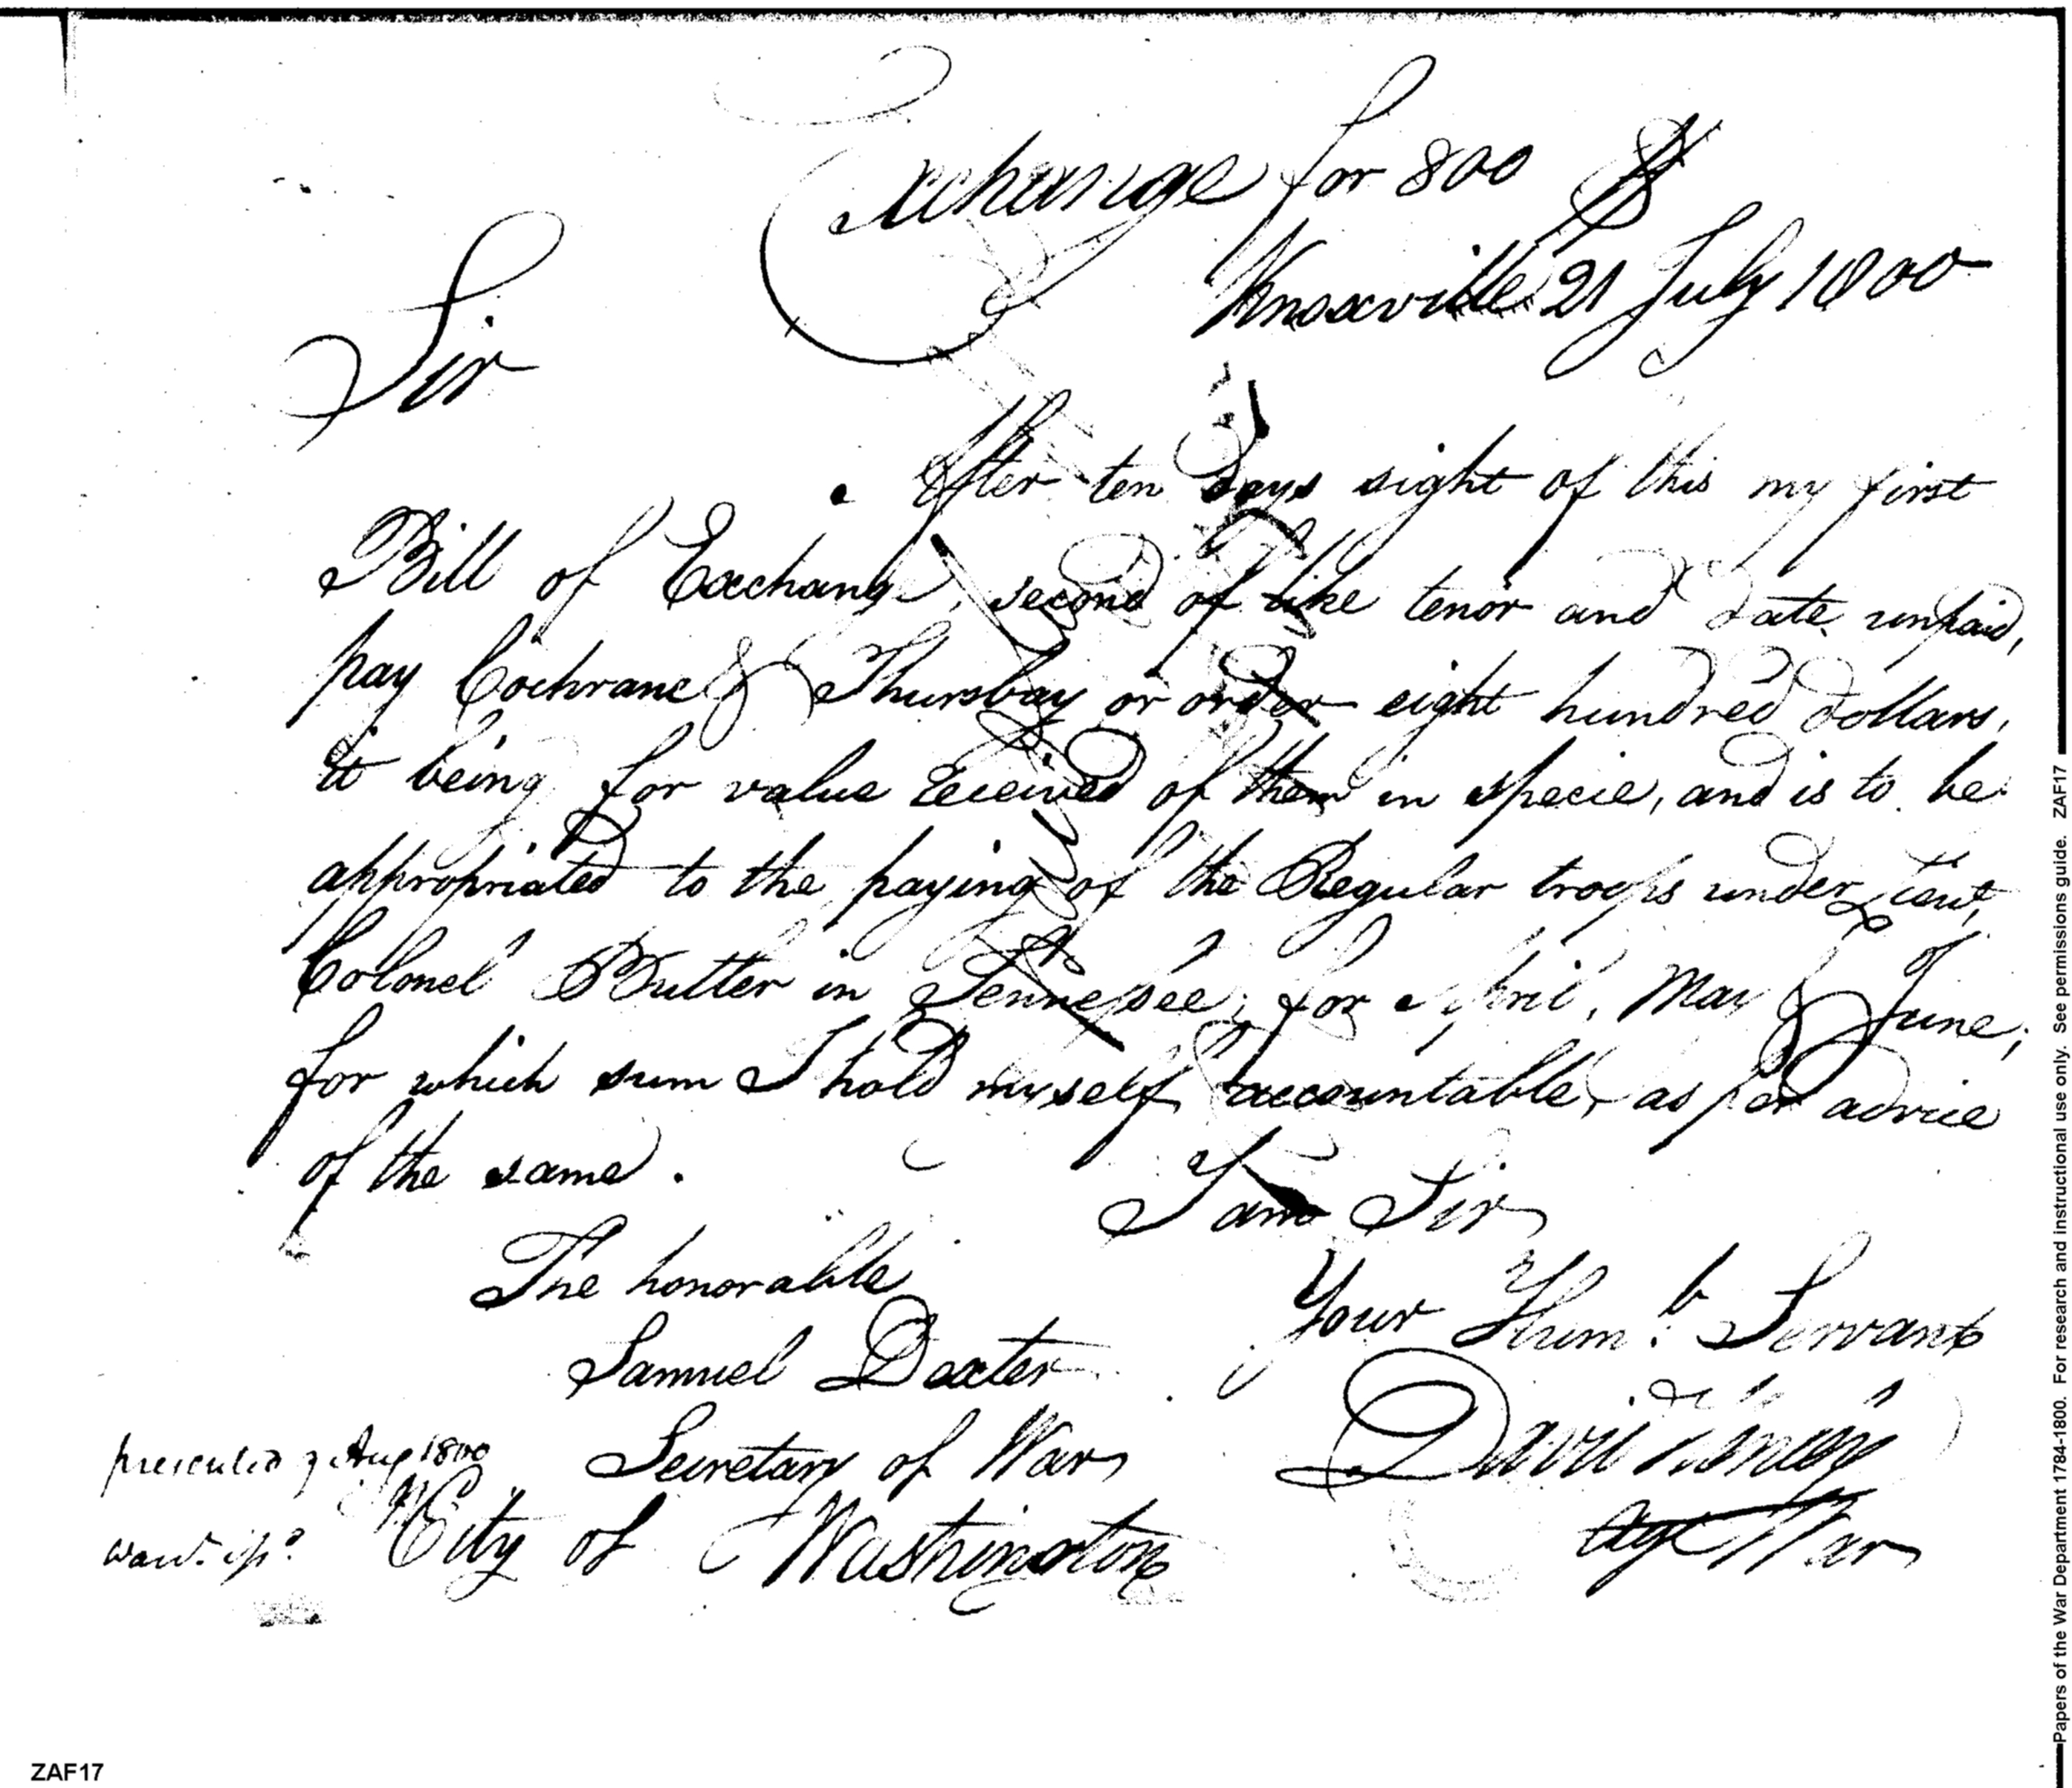 Exchange for 800 $
Knoxville 21 July 1800
Sir
After ten Days sight of this my first
Bill of Exchange, second of like tenor and date unpaid,
pay Cochrane & Thursbay or order eight hundred dollars,
it being for value received of them in specie, and is to be
appropriated to the paying of the Regular troops under Lieut,
Colonel Butler in Tennessee, for April, May & June,
for which sum I hold myself accountable, as per advice
of the same.
I am Sir
The honorable
Your Hum.b Servant
Samuel Dexter
David Henley
presented 7 Aug 1800 Secretary of War
Agt War
City of Washington
Papers of the War Department 1784-1800. For research and instructional use only. See permissions guide. ZAF17
ZAF17